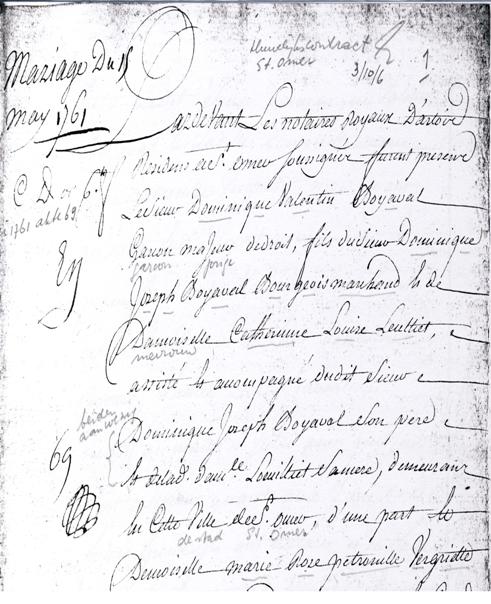 Mariage Du 15
may 1761
Huwelijkscontract
St. Omer
3/10/6
1
Pardevant Les notaires Royaux D'artois
Residens a St. omer soussignés furent presens
Le Sieur Dominique Valentin Boyaval
Garçon majeur de droit, fils du Sieur Dominique
garçon
Joseph Boyaval Bourgeois marchand & de
Damoiselle Catherinne Louise Leultiet,
mevrouw
assisté & accompagné dudit Sieur
beiden
aanwezig
Dominique Joseph Boyaval Son pere
69
& de lad. dam.lle Leuilliet Sa mere, demeurans
En Cette Ville de St. omer, d'une part &
de stad St. Omer
Demoiselle marie Rose petronille Vergriette